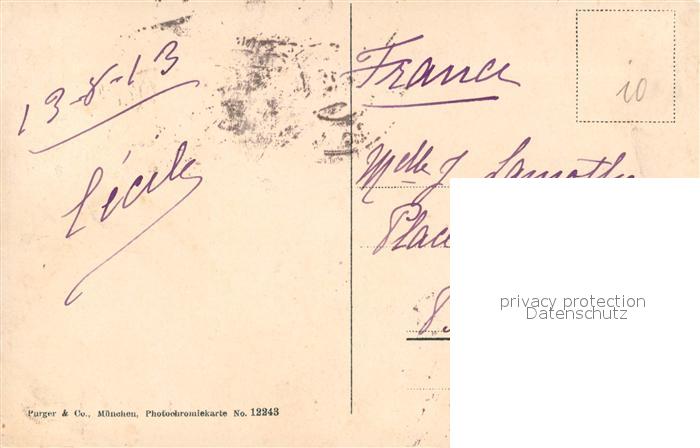 13-8-13
Cécile
France
10
Melle J. Lamothe
Place
privacy protection
Datenschutz
Purger & Co., München, Photochromiekarte No. 12243